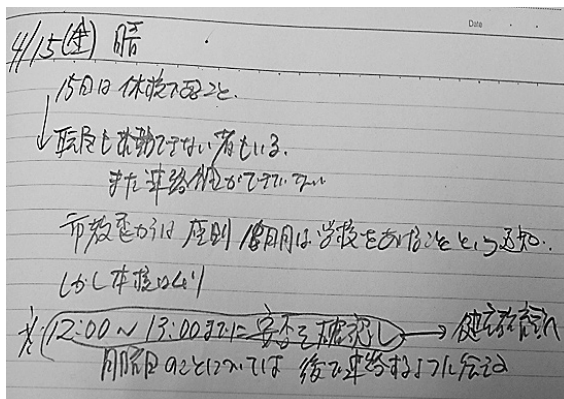 Date
4/15(金) 晴
15日は休校であること。
職員も出勤できない者もいる。
また連絡
市教委からは原則 18日月は学校をあけることという通知。
しかし本校は
※ 12:00～13:00までに安否を確認し →
月曜日のことについては後で連絡するように伝える